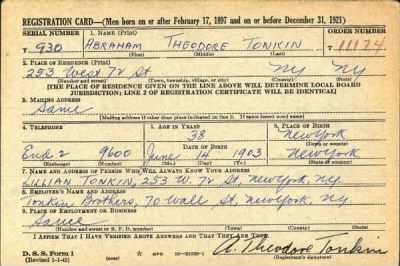 REGISTRATION CARD—(Men born on or after February 17, 1897 and on or before December 31, 1921)
SERIAL NUMBER 1. NAME (Print) ORDER NUMBER
T 930 ABRAHAM THEODORE TONKIN 11174
(First) (Middle) (Last)
2. PLACE OF RESIDENCE (Print)
253 West 72 St. NY NY
(Number and street) (Town, township, village, or city) (County) (State)
[THE PLACE OF RESIDENCE GIVEN ON THE LINE ABOVE WILL DETERMINE LOCAL BOARD
JURISDICTION; LINE 2 OF REGISTRATION CERTIFICATE WILL BE IDENTICAL]
3. MAILING ADDRESS
Same
[Mailing address if other than place indicated on line 2. If same insert word same]
4. TELEPHONE 5. AGE IN YEARS 6. PLACE OF BIRTH
38 New York
DATE OF BIRTH (Town or county)
End 2 9600 June 14 1903 New York
(Exchange) (Number) (Mo.) (Day) (Yr.) (State or country)
7. NAME AND ADDRESS OF PERSON WHO WILL ALWAYS KNOW YOUR ADDRESS
LILLIAN TONKIN, 253 W. 72 St, New York, NY
8. EMPLOYER'S NAME AND ADDRESS
Tonkin Brothers, 70 Wall St, New York, NY
9. PLACE OF EMPLOYMENT OR BUSINESS
Same
(Number and street or R. F. D. number) (Town) (County) (State)
I AFFIRM THAT I HAVE VERIFIED ABOVE ANSWERS AND THAT THEY ARE TRUE.
D. S. S. Form 1
(Revised 1-1-42) GPO A. Theodore Tonkin
(Registrant's signature)